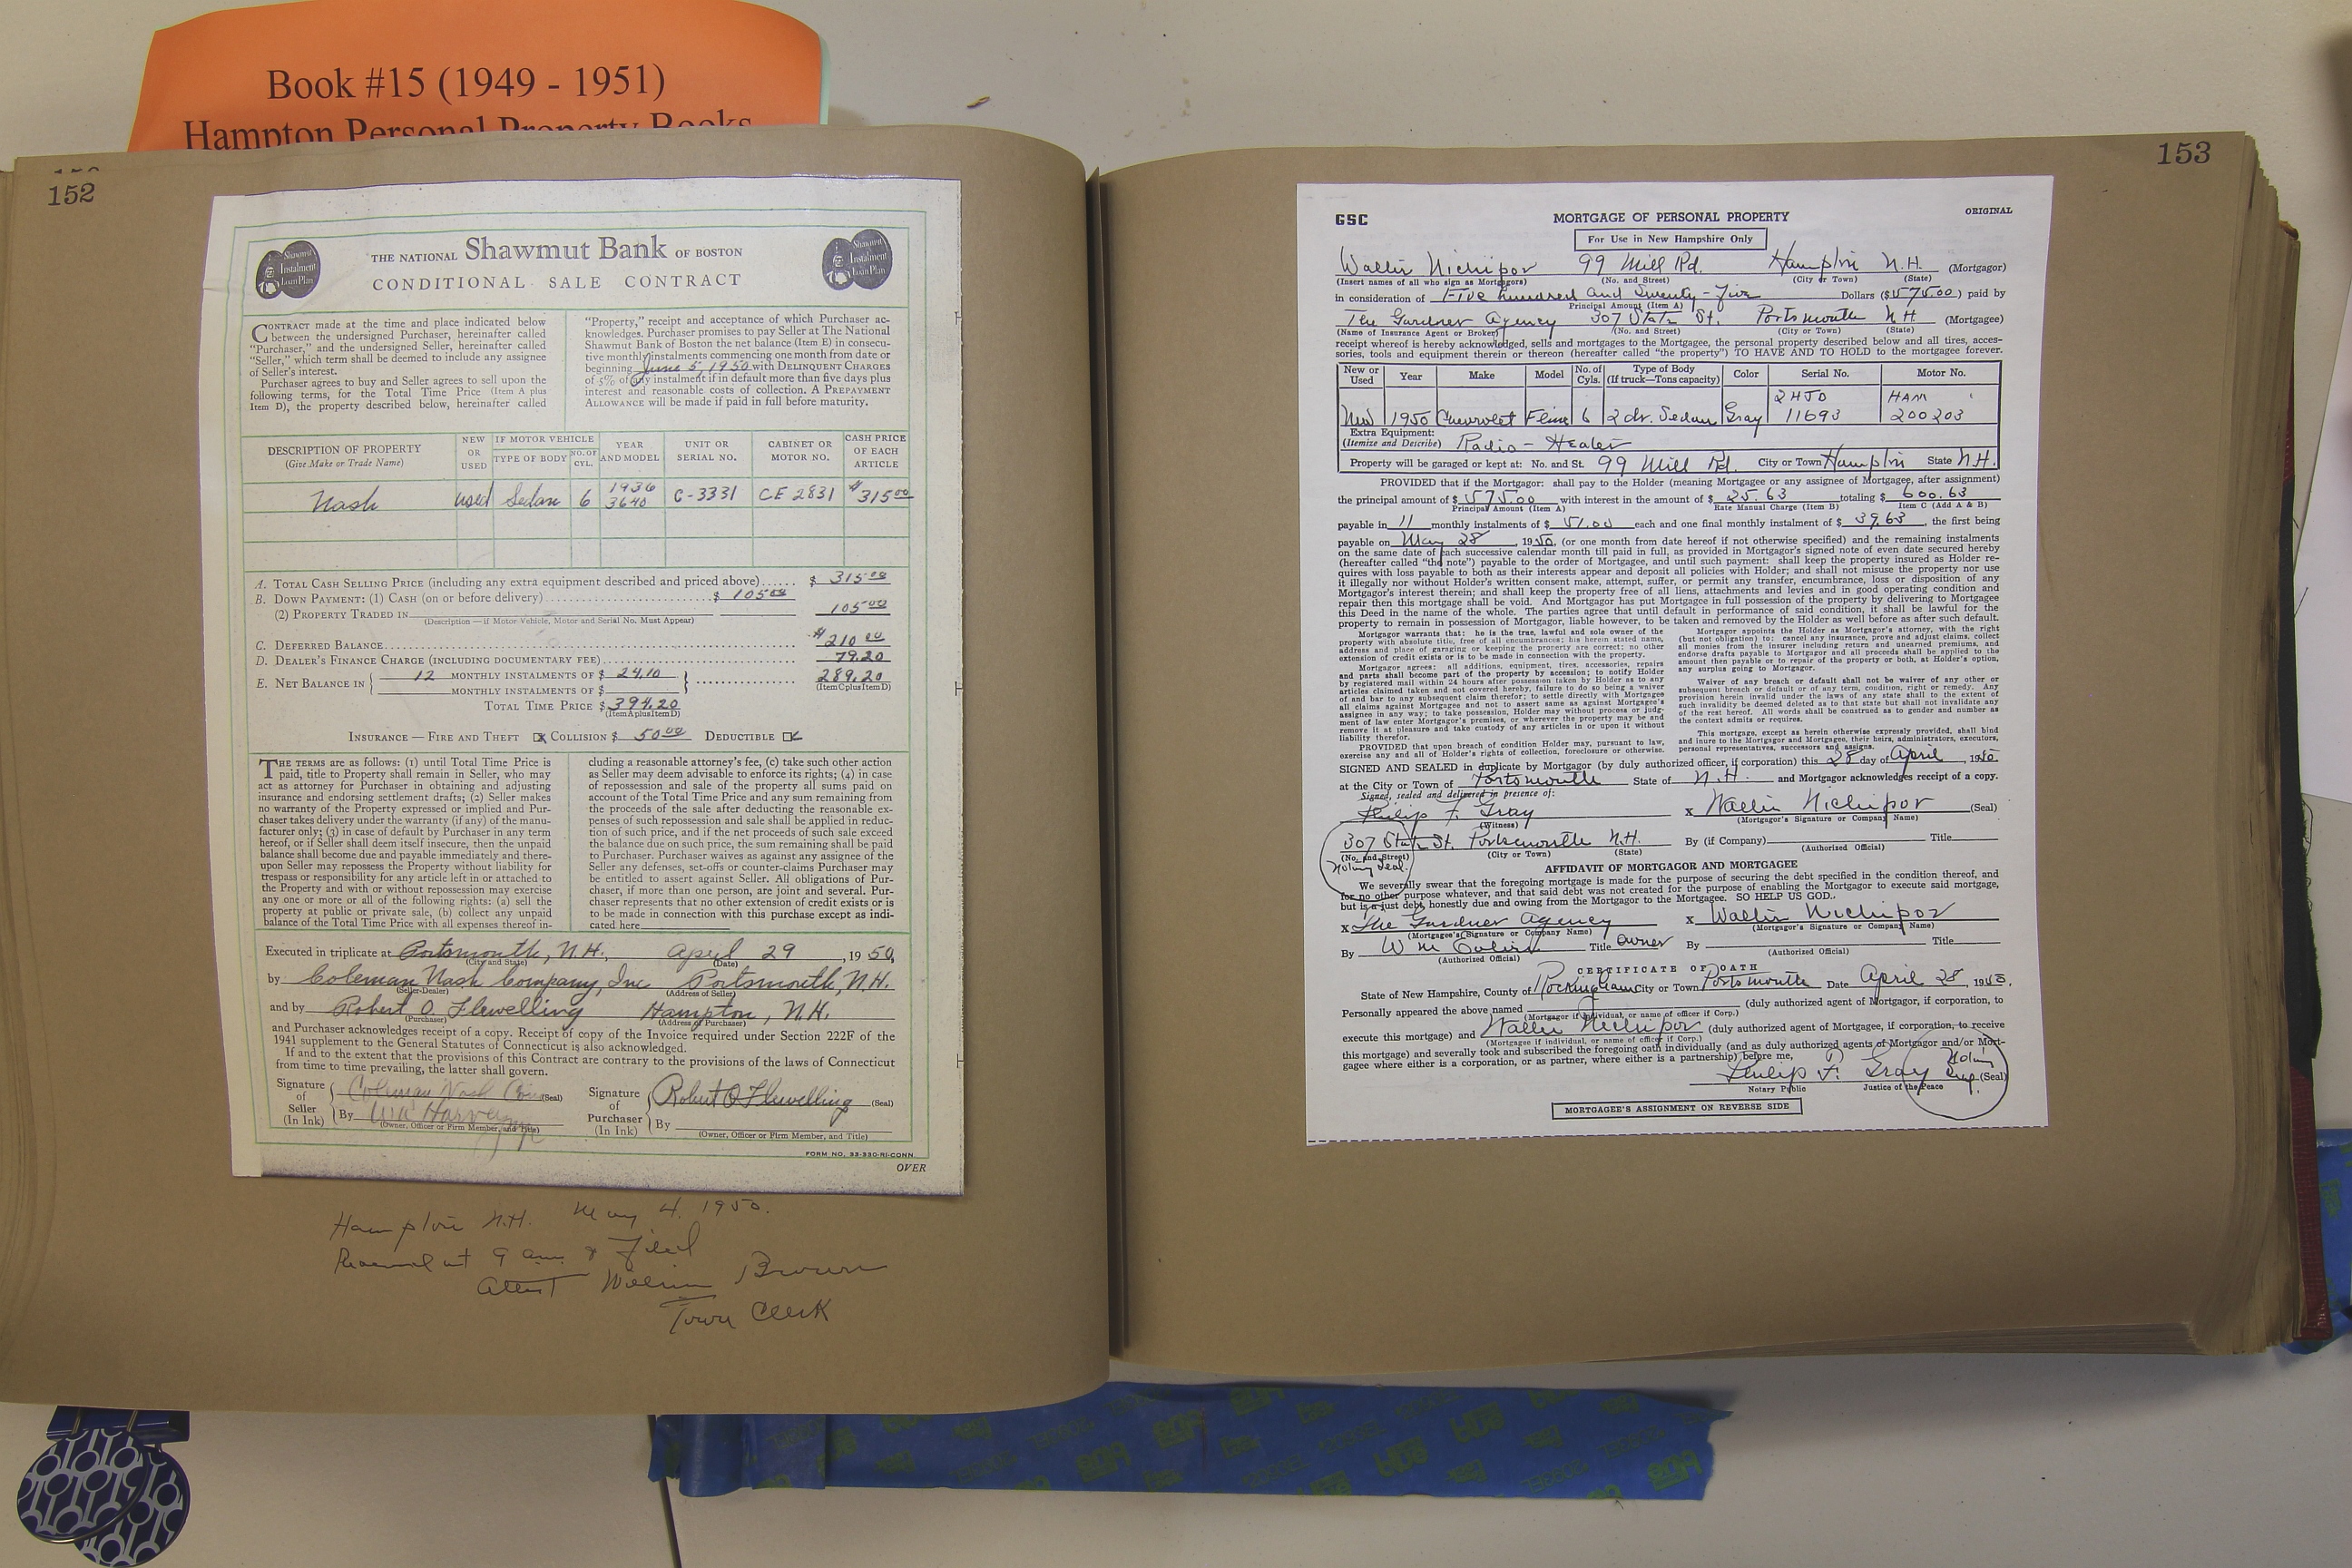 Book #15 (1949 - 1951)
Hampton Personal Property Books
152
THE NATIONAL Shawmut Bank OF BOSTON
CONDITIONAL SALE CONTRACT
Shawmut
Instalment
Loan Plan
Shawmut
Instalment
Loan Plan
CONTRACT made at the time and place indicated below
between the undersigned Purchaser, hereinafter called
"Purchaser," and the undersigned Seller, hereinafter called
"Seller," which term shall be deemed to include any assignee
of Seller's interest.
Purchaser agrees to buy and Seller agrees to sell upon the
following terms, for the Total Time Price (Item A plus
Item D), the property described below, hereinafter called
"Property," receipt and acceptance of which Purchaser ac-
knowledges. Purchaser promises to pay Seller at The National
Shawmut Bank of Boston the net balance (Item E) in consecu-
tive monthly instalments commencing one month from date or
beginning June 5, 1950 with DELINQUENT CHARGES
of 5% of any instalment if in default more than five days plus
interest and reasonable costs of collection. A PREPAYMENT
ALLOWANCE will be made if paid in full before maturity.
DESCRIPTION OF PROPERTY
(Give Make or Trade Name)
NEW
OR
USED
IF MOTOR VEHICLE
TYPE OF BODY
NO. OF
CYL.
YEAR
AND MODEL
UNIT OR
SERIAL NO.
CABINET OR
MOTOR NO.
CASH PRICE
OF EACH
ARTICLE
Nash used Sedan 6 1936 3640 C-3331 CE 2831 $315 00
A. TOTAL CASH SELLING PRICE (including any extra equipment described and priced above)...... $ 315 00
B. DOWN PAYMENT: (1) CASH (on or before delivery)........ $ 105 00
(2) PROPERTY TRADED IN 105 00
(Description — if Motor Vehicle, Motor and Serial No. Must Appear)
C. DEFERRED BALANCE........ $ 210 00
D. DEALER'S FINANCE CHARGE (INCLUDING DOCUMENTARY FEE)........ 79.20
E. NET BALANCE IN { 12 MONTHLY INSTALMENTS OF $ 24.10 } ........ 289.20
MONTHLY INSTALMENTS OF $ (Item C plus Item D)
TOTAL TIME PRICE $ 394.20
(Item A plus Item D)
INSURANCE — FIRE AND THEFT COLLISION $ 50 00 DEDUCTIBLE
THE TERMS are as follows: (1) until Total Time Price is
paid, title to Property shall remain in Seller, who may
act as attorney for Purchaser in obtaining and adjusting
insurance and endorsing settlement drafts; (2) Seller makes
no warranty of the Property expressed or implied and Pur-
chaser takes delivery under the warranty (if any) of the manu-
facturer only; (3) in case of default by Purchaser in any term
hereof, or if Seller shall deem itself insecure, then the unpaid
balance shall become due and payable immediately and there-
upon Seller may repossess the Property without liability for
trespass or responsibility for any article left in or attached to
the Property and with or without repossession may exercise
any one or more or all of the following rights: (a) sell the
property at public or private sale, (b) collect any unpaid
balance of the Total Time Price with all expenses thereof in-
cluding a reasonable attorney's fee, (c) take such other action
as Seller may deem advisable to enforce its rights; (4) in case
of repossession and sale of the property all sums paid on
account of the Total Time Price and any sum remaining from
the proceeds of the sale after deducting the reasonable ex-
penses of such repossession and sale shall be applied in reduc-
tion of such price, and if the net proceeds of such sale exceed
the balance due on such price, the sum remaining shall be paid
to Purchaser. Purchaser waives as against any assignee of the
Seller any defenses, set-offs or counter-claims Purchaser may
be entitled to assert against Seller. All obligations of Pur-
chaser, if more than one person, are joint and several. Pur-
chaser represents that no other extension of credit exists or is
to be made in connection with this purchase except as indi-
cated here
Executed in triplicate at Portsmouth, N.H., April 29, 1950,
(City and State) (Date)
by Coleman Nash Company, Inc Portsmouth, N.H.
(Seller-Dealer) (Address of Seller)
and by Robert O. Flewelling Hampton, N.H.
(Purchaser) (Address of Purchaser)
and Purchaser acknowledges receipt of a copy. Receipt of copy of the Invoice required under Section 222F of the
1941 supplement to the General Statutes of Connecticut is also acknowledged.
If and to the extent that the provisions of this Contract are contrary to the provisions of the laws of Connecticut
from time to time prevailing, the latter shall govern.
Signature
of
Seller
(In Ink)
Coleman Nash Co (Seal)
By
(Owner, Officer or Firm Member, and Title)
Signature
of
Purchaser
(In Ink)
Robert O Flewelling (Seal)
By
(Owner, Officer or Firm Member, and Title)
FORM NO. 33-330-RI-CONN.
OVER
Hampton N.H. May 4, 1950.
Received at 9 am & Filed
Attest William Brown
Town Clerk
153
GSC
MORTGAGE OF PERSONAL PROPERTY
ORIGINAL
For Use in New Hampshire Only
Walter Nichipor 99 Mill Rd. Hampton N.H. (Mortgagor)
(Insert names of all who sign as Mortgagors) (No. and Street) (City or Town) (State)
in consideration of Five hundred and Seventy-Five Dollars ($575.00) paid by
Principal Amount (Item A)
The Gardner Agency 307 State St. Portsmouth N.H. (Mortgagee)
(Name of Insurance Agent or Broker) (No. and Street) (City or Town) (State)
receipt whereof is hereby acknowledged, sells and mortgages to the Mortgagee, the personal property described below and all tires, acces-
sories, tools and equipment therein or thereon (hereafter called "the property") TO HAVE AND TO HOLD to the mortgagee forever.
New or Used Year Make Model No. of Cyls. Type of Body (If truck—Tons capacity) Color Serial No. Motor No.
2HJD HAM
New 1950 Chevrolet Fline 6 2 dr. Sedan Gray 11693 200203
Extra Equipment:
(Itemize and Describe) Radio - Heater
Property will be garaged or kept at: No. and St. 99 Mill Rd. City or Town Hampton State N.H.
PROVIDED that if the Mortgagor: shall pay to the Holder (meaning Mortgagee or any assignee of Mortgagee, after assignment)
the principal amount of $ 575.00 with interest in the amount of $ 25.63 totaling $ 600.63
Principal Amount (Item A) Rate Manual Charge (Item B) Item C (Add A & B)
payable in 11 monthly instalments of $ 51.00 each and one final monthly instalment of $ 39.63, the first being
payable on May 28, 1950, (or one month from date hereof if not otherwise specified) and the remaining instalments
on the same date of each successive calendar month till paid in full, as provided in Mortgagor's signed note of even date secured hereby
(hereafter called "the note") payable to the order of Mortgagee, and until such payment: shall keep the property insured as Holder re-
quires with loss payable to both as their interests appear and deposit all policies with Holder; and shall not misuse the property nor use
it illegally nor without Holder's written consent make, attempt, suffer, or permit any transfer, encumbrance, loss or disposition of any
Mortgagor's interest therein; and shall keep the property free of all liens, attachments and levies and in good operating condition and
repair then this mortgage shall be void. And Mortgagor has put Mortgagee in full possession of the property by delivering to Mortgagee
this Deed in the name of the whole. The parties agree that until default in performance of said condition, it shall be lawful for the
property to remain in possession of Mortgagor, liable however, to be taken and removed by the Holder as well before as after such default.
Mortgagor warrants that: he is the true, lawful and sole owner of the
property with absolute title, free of all encumbrances; his herein stated name,
address and place of garaging or keeping the property are correct; no other
extension of credit exists or is to be made in connection with the property.
Mortgagor agrees: all additions, equipment, tires, accessories, repairs
and parts shall become part of the property by accession; to notify Holder
by registered mail within 24 hours after possession taken by Holder as to any
articles claimed taken and not covered hereby, failure to do so being a waiver
of and bar to any subsequent claim therefor; to settle directly with Mortgagee
all claims against Mortgagee and not to assert same as against Mortgagee's
assignee in any way; to take possession, Holder may without process or judg-
ment of law enter Mortgagor's premises, or wherever the property may be and
remove it at pleasure and take custody of any articles in or upon it without
liability therefor.
PROVIDED that upon breach of condition Holder may, pursuant to law,
exercise any and all of Holder's rights of collection, foreclosure or otherwise.
Mortgagor appoints the Holder as Mortgagor's attorney, with the right
(but not obligation) to: cancel any insurance, prove and adjust claims, collect
all monies from the insurer including return and unearned premiums, and
endorse drafts payable to Mortgagor and all proceeds shall be applied to the
amount then payable or to repair of the property or both, at Holder's option,
any surplus going to Mortgagor.
Waiver of any breach or default shall not be waiver of any other or
subsequent breach or default or of any term, condition, right or remedy. Any
provision herein invalid under the laws of any state shall to the extent of
such invalidity be deemed deleted as to that state but shall not invalidate any
of the rest hereof. All words shall be construed as to gender and number as
the context admits or requires.
This mortgage, except as herein otherwise expressly provided, shall bind
and inure to the Mortgagor and Mortgagee, their heirs, administrators, executors,
personal representatives, successors and assigns.
SIGNED AND SEALED in duplicate by Mortgagor (by duly authorized officer, if corporation) this 28 day of April, 1950
at the City or Town of Portsmouth State of N.H. and Mortgagor acknowledges receipt of a copy.
Signed, sealed and delivered in presence of:
Philip F. Gray x Walter Nichipor (Seal)
(Witness) (Mortgagor's Signature or Company Name)
307 State St. Portsmouth N.H. By (if Company) Title
(No. and Street) (City or Town) (State) (Authorized Official)
Notary Seal.
AFFIDAVIT OF MORTGAGOR AND MORTGAGEE
We severally swear that the foregoing mortgage is made for the purpose of securing the debt specified in the condition thereof, and
for no other purpose whatever, and that said debt was not created for the purpose of enabling the Mortgagor to execute said mortgage,
but is a just debt, honestly due and owing from the Mortgagor to the Mortgagee. SO HELP US GOD..
x The Gardner Agency x Walter Nichipor
(Mortgagee's Signature or Company Name) (Mortgagor's Signature or Company Name)
By Title Owner By Title
(Authorized Official) (Authorized Official)
CERTIFICATE OF OATH
State of New Hampshire, County of Rockingham City or Town Portsmouth Date April 28, 1950.
Personally appeared the above named (duly authorized agent of Mortgagor, if corporation, to
(Mortgagor if individual, or name of officer if Corp.)
execute this mortgage) and Walter Nichipor (duly authorized agent of Mortgagee, if corporation, to receive
(Mortgagee if individual, or name of officer if Corp.)
this mortgage) and severally took and subscribed the foregoing oath individually (and as duly authorized agents of Mortgagor and/or Mort-
gagee where either is a corporation, or as partner, where either is a partnership) before me,
Philip F. Gray (Seal)
Notary Public Justice of the Peace
MORTGAGEE'S ASSIGNMENT ON REVERSE SIDE